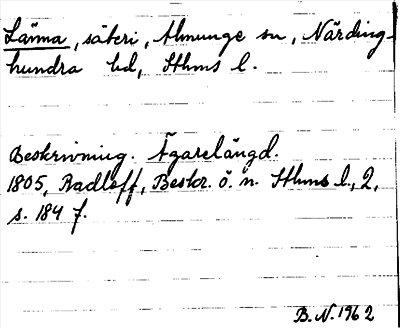 Länna, säteri, Almunge sn, Närding-
hundra hd, Sthms l.
Beskrivning. Ägarelängd.
1805, Radloff, Beskr. ö. n. Sthms l., 2,
s. 184 f.
B.N. 1962